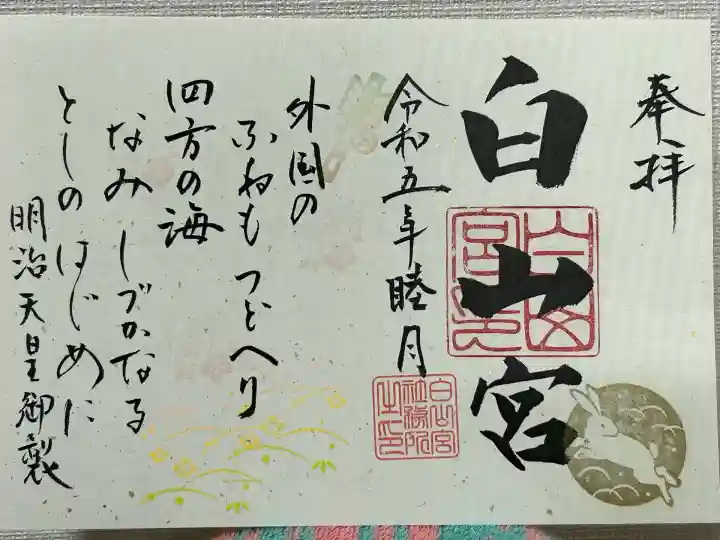 奉拝
白山宮
令和五年睦月
外国の
ふねもつどへり
四方の海
なみしづかなる
としのはじめに
明治天皇御製
白山宮
社務所
之印